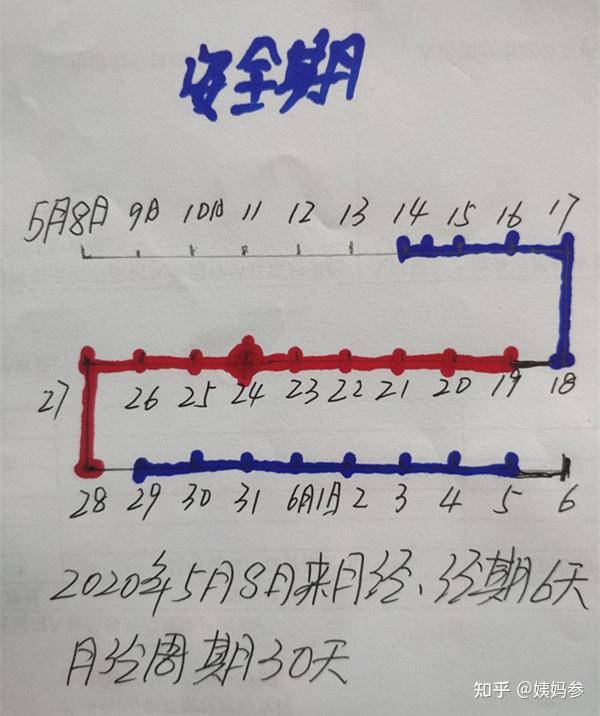 安全期
5月8日 9日 10日 11 12 13 14 15 16 17
27 26 25 24 23 22 21 20 19 18
28 29 30 31 6月1日 2 3 4 5 6
2020年5月8日来月经、经期6天
月经周期30天
知乎 @姨妈参